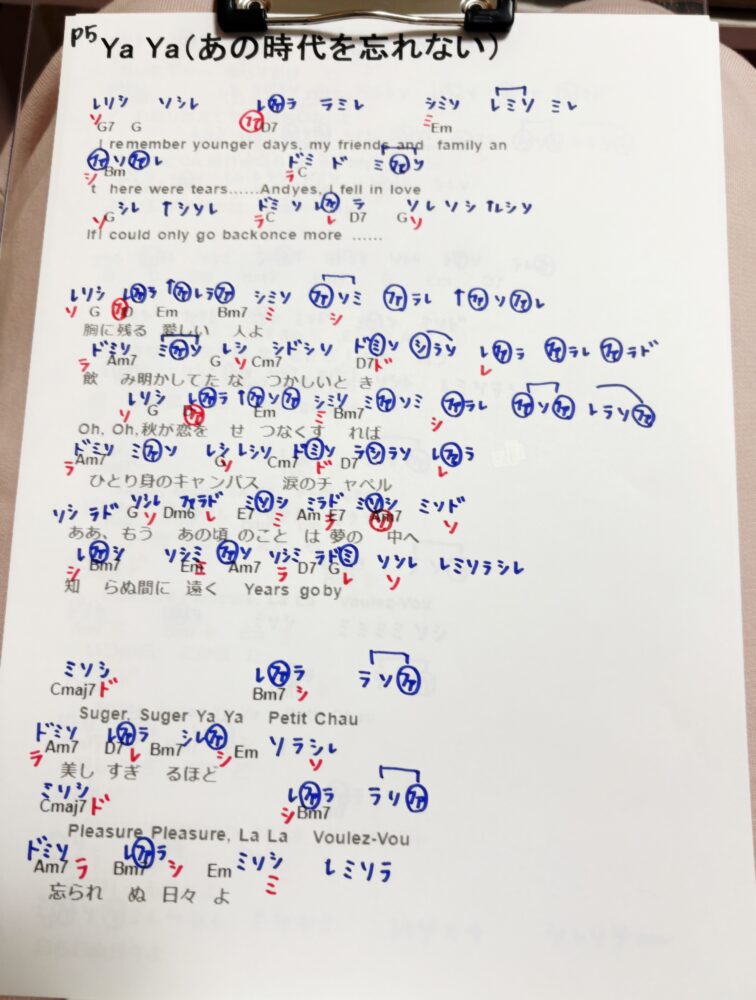 P5 Ya Ya(あの時代を忘れない)
レリシ ソシレ レファラ ラミレ シミソ レミソ ミレ
ソ G7 G ファ D7 ミ Em
I remember younger days, my friends and family an
ファソファレ ドミ ド ミファソ
シ Bm ラ C
t here were tears......Andyes, I fell in love
シレ ↑シソレ ドミ ソ レファ ラ ソレ ソシ ↑レシソ
ソ G ラ C レ D7 G ソ
IfI could only go backonce more ......
レソシ レファラ ↑ファレラファ シミソ ファソミ ファラレ ↑ファソファレ
ソ G ファ D Em Bm7 ミ シ
胸に残る 愛しい 人よ
ドミソ ミファソ レシ シドシソ ドミソ シラソ レファラ ファラレ ファラド
ラ Am7 G ソ Cm7 D7 ド レ
飲 み明かしてた な つかしいと き
レソシ レファラ ↑ファソファ シミソ ミファソミ ファラレ ファソファ レラソファ
ソ G D ファ Em ミ Bm7 シ
Oh, Oh,秋が恋を せ つなくす れば
ドミソ ミファソ レシ レシソ ドミソ ラシラソ レファラ
ラ Am7 G ソ Cm7 ド D7 レ
ひとり身のキャンパス 涙のチ ャペル
ソシ ラド ソシレ ファラド ミソシ ミラド ミソシ ミソド
G ソ Dm6 レ E7 ミ Am E7 ラ Am7 ソ ソ
ああ、もう あの頃 のこと は 夢の 中へ
レファシ ソシミ ファソ ソシミ ラドミ ソシレ レミソラシレ
シ Bm7 Em ミ Am7 ラ D7 G レ ソ
知 らぬ間に 遠く Years goby
ミソシ レファラ ラソファ
Cmaj7 ド Bm7 シ
Suger, Suger Ya Ya Petit Chau
ドミソ レファラ シレファ ソラシレ
ラ Am7 D7 レ Bm7 シ Em ソ
美し すぎ るほど
ミソシ レファラ ラソファ
Cmaj7 ド シ Bm7
Pleasure Pleasure, La La Voulez-Vou
ドミソ レファラ ミソシ レミソラ
Am7 ラ Bm7 シ Em ミ
忘られ ぬ 日々 よ